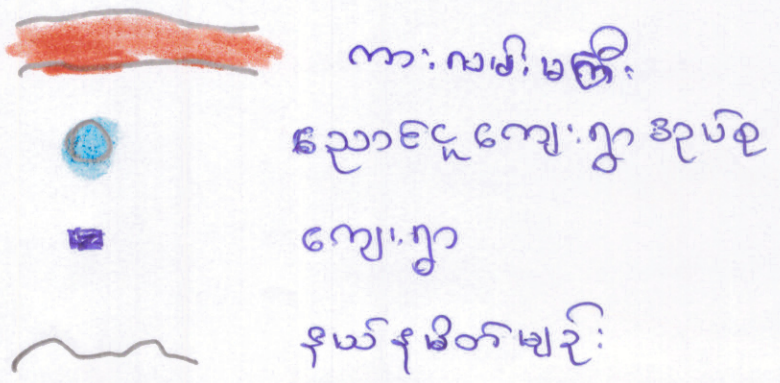 ကားလမ်းမကြီး
ညောင်ငူကျေးရွာအုပ်စု
ကျေးရွာ
နယ်နမိတ်မျဉ်း